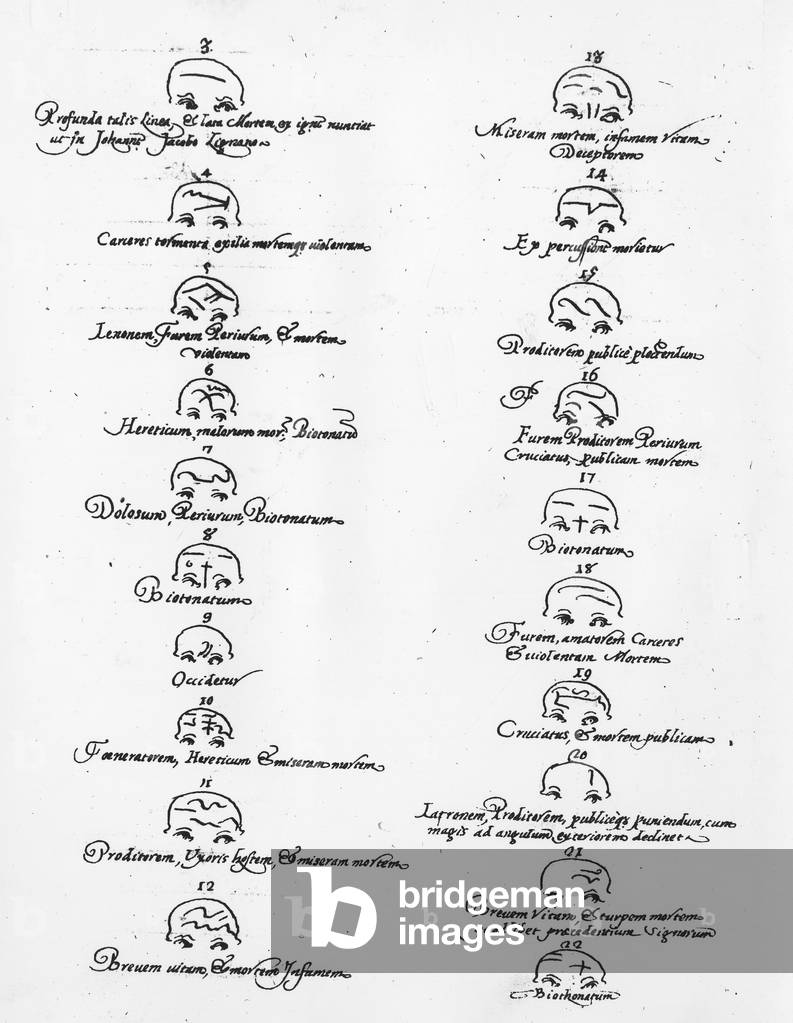 3.
Profunda talis Linea, & lata Mortem ex igne nuntiat
ut in Johanne Jacobo Lignano
4
Carceres tormenta exilia mortemqs violentam
5
Lenonem, Furem Periurum, & mortem
violentam
6
Hereticum, malorum mor: Biotonatū
7
Dolosum, Periurum, Biotonatum
8
Biotonatum
9
Occidetur
10
Foeneratorem, Hereticum & miseram mortem
11
Proditorem, Uxoris hostem, & miseram mortem
12
Brevem vitam, & mortem Infamem
13
Miseram mortem, infamem vitam
Deceptorem
14
Ex percussione morietur
15
Proditorem publicè plectendum
16
Furem Proditorem Periurum
Cruciatus, publicam mortem
17
Biotonatum
18
Furem, amatorem Carceres
& violentam Mortem
19
Cruciatus, & mortem publicam
20
Latronem, Proditorem, publiceqs puniendum, cum
magis ad angulum exteriorem declinet
21
Brevem vitam, & turpem mortem
et praecedentium signorum
22
Biothonatum
b bridgeman
images